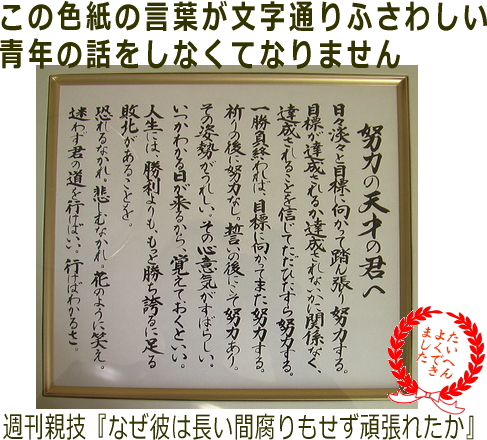 この色紙の言葉が文字通りふさわしい
青年の話をしなくてなりません
努力の天才の君へ
日々淡々と目標に向かって踏ん張り努力する。
目標が達成されるか、達成されないか、に関係なく、
達成されることを信じてただひたすら努力する。
一勝負終われば、目標に向かてまた努力する。
祈りの後に努力なし。誓いの後にこそ努力あり。
その姿勢がうれしい、その心意気がすばらしい。
いつかわかる日が来るから、覚えておくといい。
人生には、勝利よりも、もっと勝ち誇るに足る
敗北があることを。
恐れるなかれ。悲しむなかれ。花のように笑え。
迷わず君の道を行けばいい。行けばわかるさ。
たいへん
よくでき
ました
週刊親技『なぜ彼は長い間腐りもせず頑張れたか』